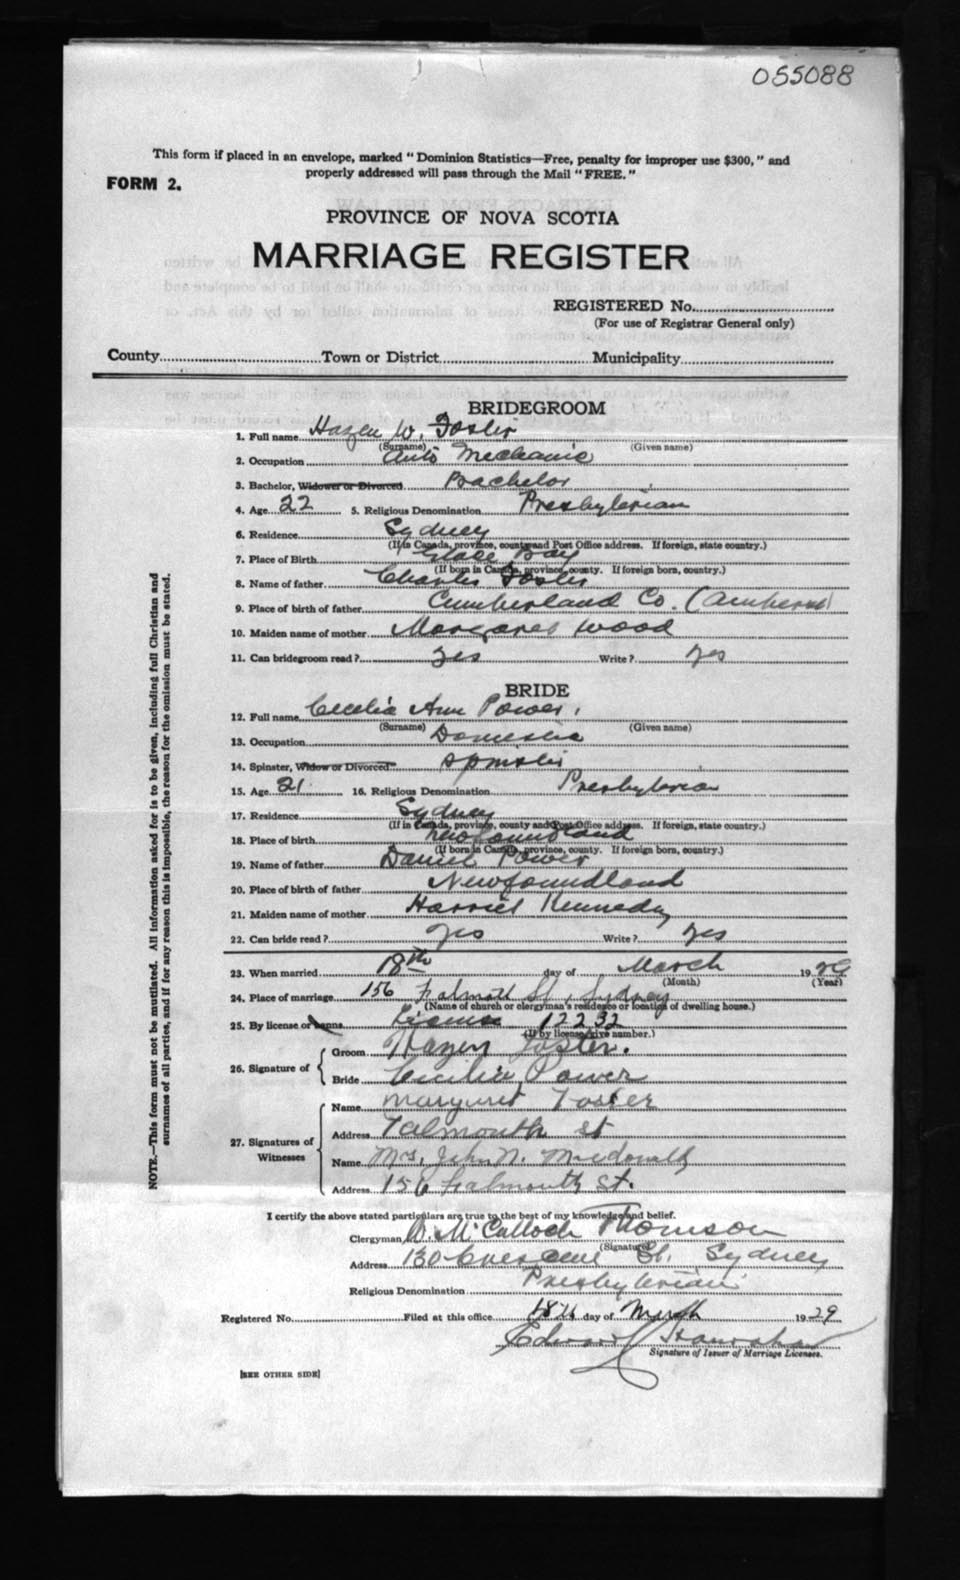 055088
This form if placed in an envelope, marked "Dominion Statistics—Free, penalty for improper use $300," and
properly addressed will pass through the Mail "FREE."
FORM 2.
PROVINCE OF NOVA SCOTIA
MARRIAGE REGISTER
REGISTERED No.
(For use of Registrar General only)
County Town or District Municipality
BRIDEGROOM
1. Full name Hazen W. Foster
(Surname) (Given name)
2. Occupation Auto Mechanic
3. Bachelor, Widower or Divorced Bachelor
4. Age 22 5. Religious Denomination Presbyterian
6. Residence Sydney
(If in Canada, province, county and Post Office address. If foreign, state country.)
7. Place of Birth Glace Bay
(If born in Canada, province, county. If foreign born, country.)
8. Name of father Charles Foster
9. Place of birth of father Cumberland Co. (Amherst)
10. Maiden name of mother Margaret Wood
11. Can bridegroom read? yes Write? yes
BRIDE
12. Full name Cecelia Ann Power
(Surname) (Given name)
13. Occupation Domestic
14. Spinster, Widow or Divorced Spinster
15. Age 21 16. Religious Denomination Presbyterian
17. Residence Sydney
(If in Canada, province, county and Post Office address. If foreign, state country.)
18. Place of birth Newfoundland
(If born in Canada, province, county. If foreign born, country.)
19. Name of father Daniel Power
20. Place of birth of father Newfoundland
21. Maiden name of mother Harriet Kennedy
22. Can bride read? yes Write? yes
23. When married 18th day of March 1929
(Month) (Year)
24. Place of marriage 156 Falmouth St, Sydney
(Name of church or clergyman's residence or location of dwelling house.)
25. By license or banns License 12232
(If by license give number.)
26. Signature of Groom Hazen Foster.
Bride Cecilia Power
27. Signatures of Witnesses
Name Margaret Foster
Address Falmouth St
Name Mrs. John N. Macdonald
Address 156 Falmouth St.
I certify the above stated particulars are true to the best of my knowledge and belief.
Clergyman D. McCulloch Thomson
(Signature)
Address 130 Crescent St. Sydney
Religious Denomination Presbyterian
Registered No. Filed at this office 18th day of March 1929
Edward Hanrahan
Signature of Issuer of Marriage Licenses.
[SEE OTHER SIDE]
NOTE.—This form must not be mutilated. All information asked for is to be given, including full Christian and
surnames of all parties, and if for any reason this is impossible, the reason for the omission must be stated.